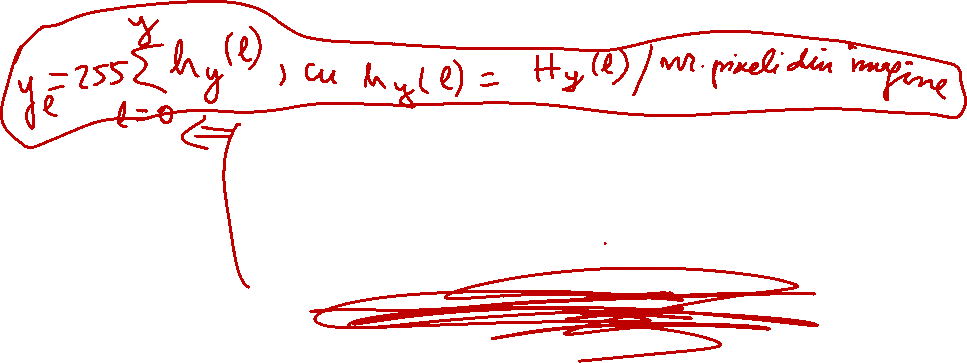 y_e = 255 ∑_{l=0}^{y} h_y(l), cu h_y(l) = H_y(l) / nr. pixeli din imagine
⇐